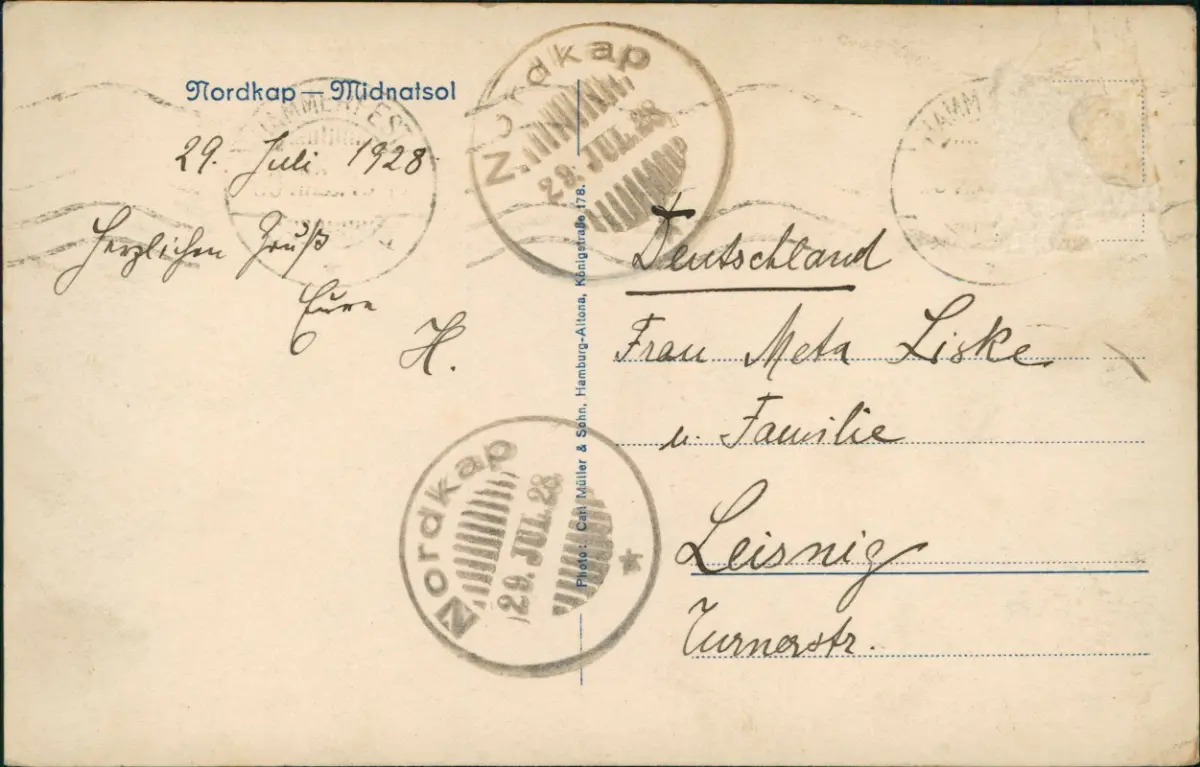 Nordkap — Midnatsol
29. Juli 1928
Herzlichen Gruß
Eure
H.
Nordkap
29. JUL. 28
HAMMERFEST
HAMM
Photo: Carl Müller & Sohn, Hamburg-Altona, Königstraße 178.
Deutschland
Frau Meta Liske
u. Familie
Leisnig
Turnerstr.
Nordkap
29. JUL. 28